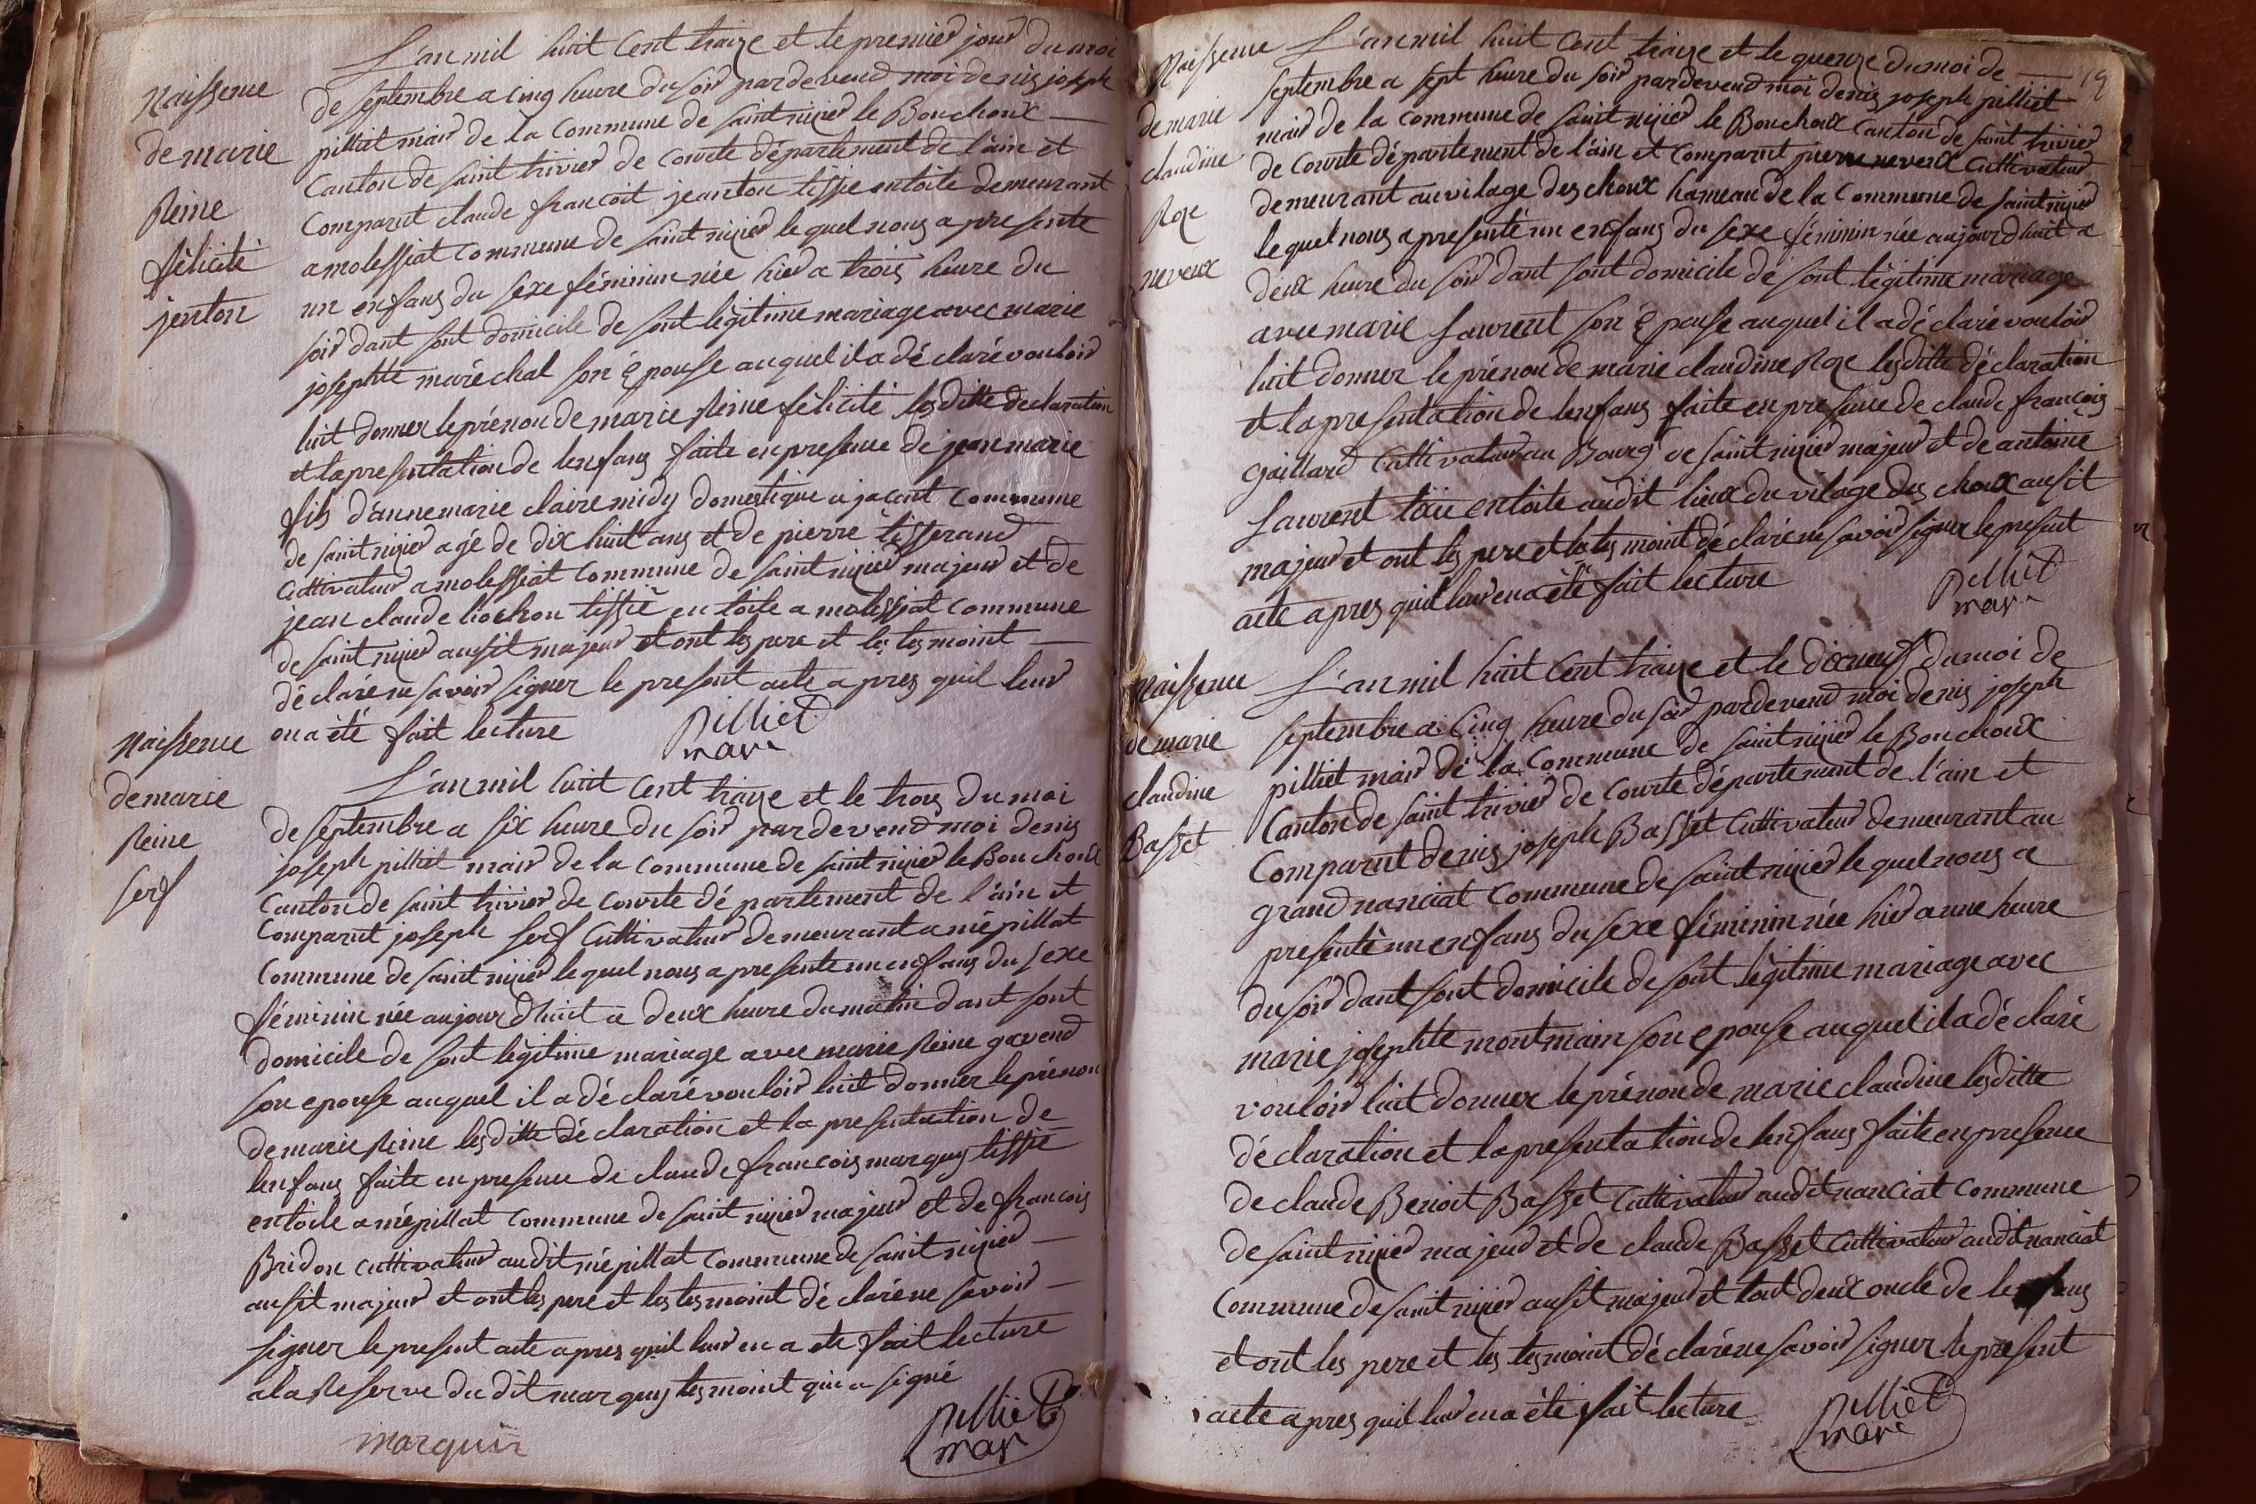 Naissence
de marie
Reine
félicité
jenton
L'an mil huit cent traize et le premier jour du moi
de septembre a cinq heure du soir pardevend moi denis joseph
pilliet mair de la Commune de saint nizier le Bouchoux
Canton de saint trivier de Courte département de l'ain et
Comparut claude francoit jeanton tissie en toile demeurant
a molessiat commune de saint nizier le quel nous a presente
un enfans du sexe féminin née hier a trois heure du
soir dant sont domicile de sont légitime mariage avec marie
josephte maréchal son épouse au quel il a dé claré vouloir
luit donner le prénon de marie Reine félicité lesditte declaration
et la presentation de lenfans faite en presence de jean marie
fils d'anne marie claire midy domestique a jacent commune
de saint nizier agé de dix huit ans et de pierre tisserand
Cultivateur a molessiat commune de saint nizier majeur et de
jean claude hochon tissié en toile a molessiat commune
de saint nizier ausit majeur et ont les pere et les tesmoint
dé claré ne savoir signer le present acte a pres quil leur
en a été fait lecture
Pilliet
mair
Naissence
de marie
Reine
serf
L'an mil huit cent traize et le trois du moi
de septembre a six heure du soir pardevend moi denis
joseph pilliet mair de la commune de saint nizier le Bouchoux
Canton de saint trivier de Courte dé partement de l'ain et
Comparut joseph serf Cultivateur demeurant a mépillat
Commune de saint nizier le quel nous a presente un enfans du sexe
féminin née aujourdhuit a deux heure du matin dant sont
domicile de sont légitime mariage avec marie Reine gavend
son epouse au quel il a dé claré vouloir luit donner le prénon
de marie Reine lesditte dé claration et la presentation de
lenfans faite en presence de claude francois marquis tissié
en toile a mépillat commune de saint nizier majeur et de francois
Bridon cultivateur audit mépillat commune de saint nizier
ausit majeur et ont les pere et les tesmoint dé claré ne savoir
signer le present acte a pres quil leur en a ete fait lecture
a la Reserve du dit marquis tesmoint qui a signé
marquis
pilliet
mair
19
Naissence
de marie
claudine
Roze
neveux
L'an mil huit cent traize et le quenze du moi de
septembre a sept heure du soir pardevend moi denis joseph pilliet
mair de la commune de saint nizier le Bouchoux Canton de saint trivier
de Courte département de l'ain et comparut pierre neveux Cultivateur
demeurant au vilage des choux hameau de la Commune de saint nizier
le quel nous a presenté un enfans du sexe féminin née aujourdhuit a
deux heure du soir dant sont domicile de sont légitime mariage
avec marie Laurent son épouse au quel il a dé claré vouloir
luit donner le prénon de marie claudine Roze lesditte déclaration
et la presentation de lenfans faite en presence de claude françois
Gaillard Cultivateur au Bourg de saint nizier majeur et de antoine
Laurent tissie en toile audit lieux du vilage des choux ausit
majeur et ont les pere et les tesmoint déclaré ne savoir signer le present
acte a pres quil leur en a été fait lecture
Pilliet
mair
Naissence
de marie
claudine
Basset
L'an mil huit Cent traize et le dixneuf du moi de
septembre a Cinq heure du soir pardevend moi denis joseph
pilliet mair de la Commune de saint nizier le Bouchoux
Canton de saint trivier de Courte département de l'ain et
Comparut denis joseph Basset Cultivateur demeurant au
grand nanciat Commune de saint nizier le quel nous a
presenté un enfans du sexe féminin née hier a une heure
du soir dant sont domicile de sont légitime mariage avec
marie josephte montmain son epouse au quel il a dé claré
vouloir luit donner le prénon de marie claudine lesditte
déclaration et la presentation de lenfans faite en presence
de claude Benoit Basset Cultivateur audit nanciat commune
de saint nizier majeur et de claude Basset Cultivateur audit nanciat
Commune de saint nizier ausit majeur et tout deux oncle de lenfans
et ont les pere et les tesmoint déclaré ne savoir signer le présent
acte a pres quil leur en a été fait lecture
pilliet
maire